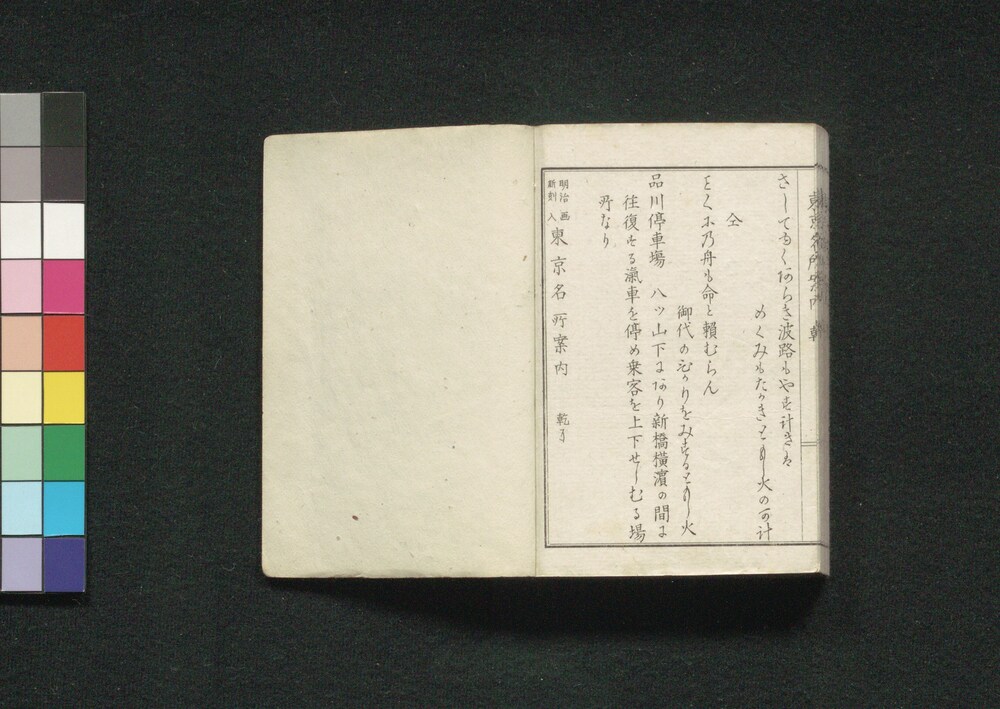 東京名所案内 乾
さしてゆくあらき波路もやす計きは
めくみもたかきともし火の可計
仝
よく本乃舟も命と頼むらん
御代のひかりをみするともし火
品川停車塲 八ツ山下にあり新橋横濱の間に
往復する滊車を停め乗客を上下せしむる場
所なり
明治新刻 画入 東京名所案内 乾